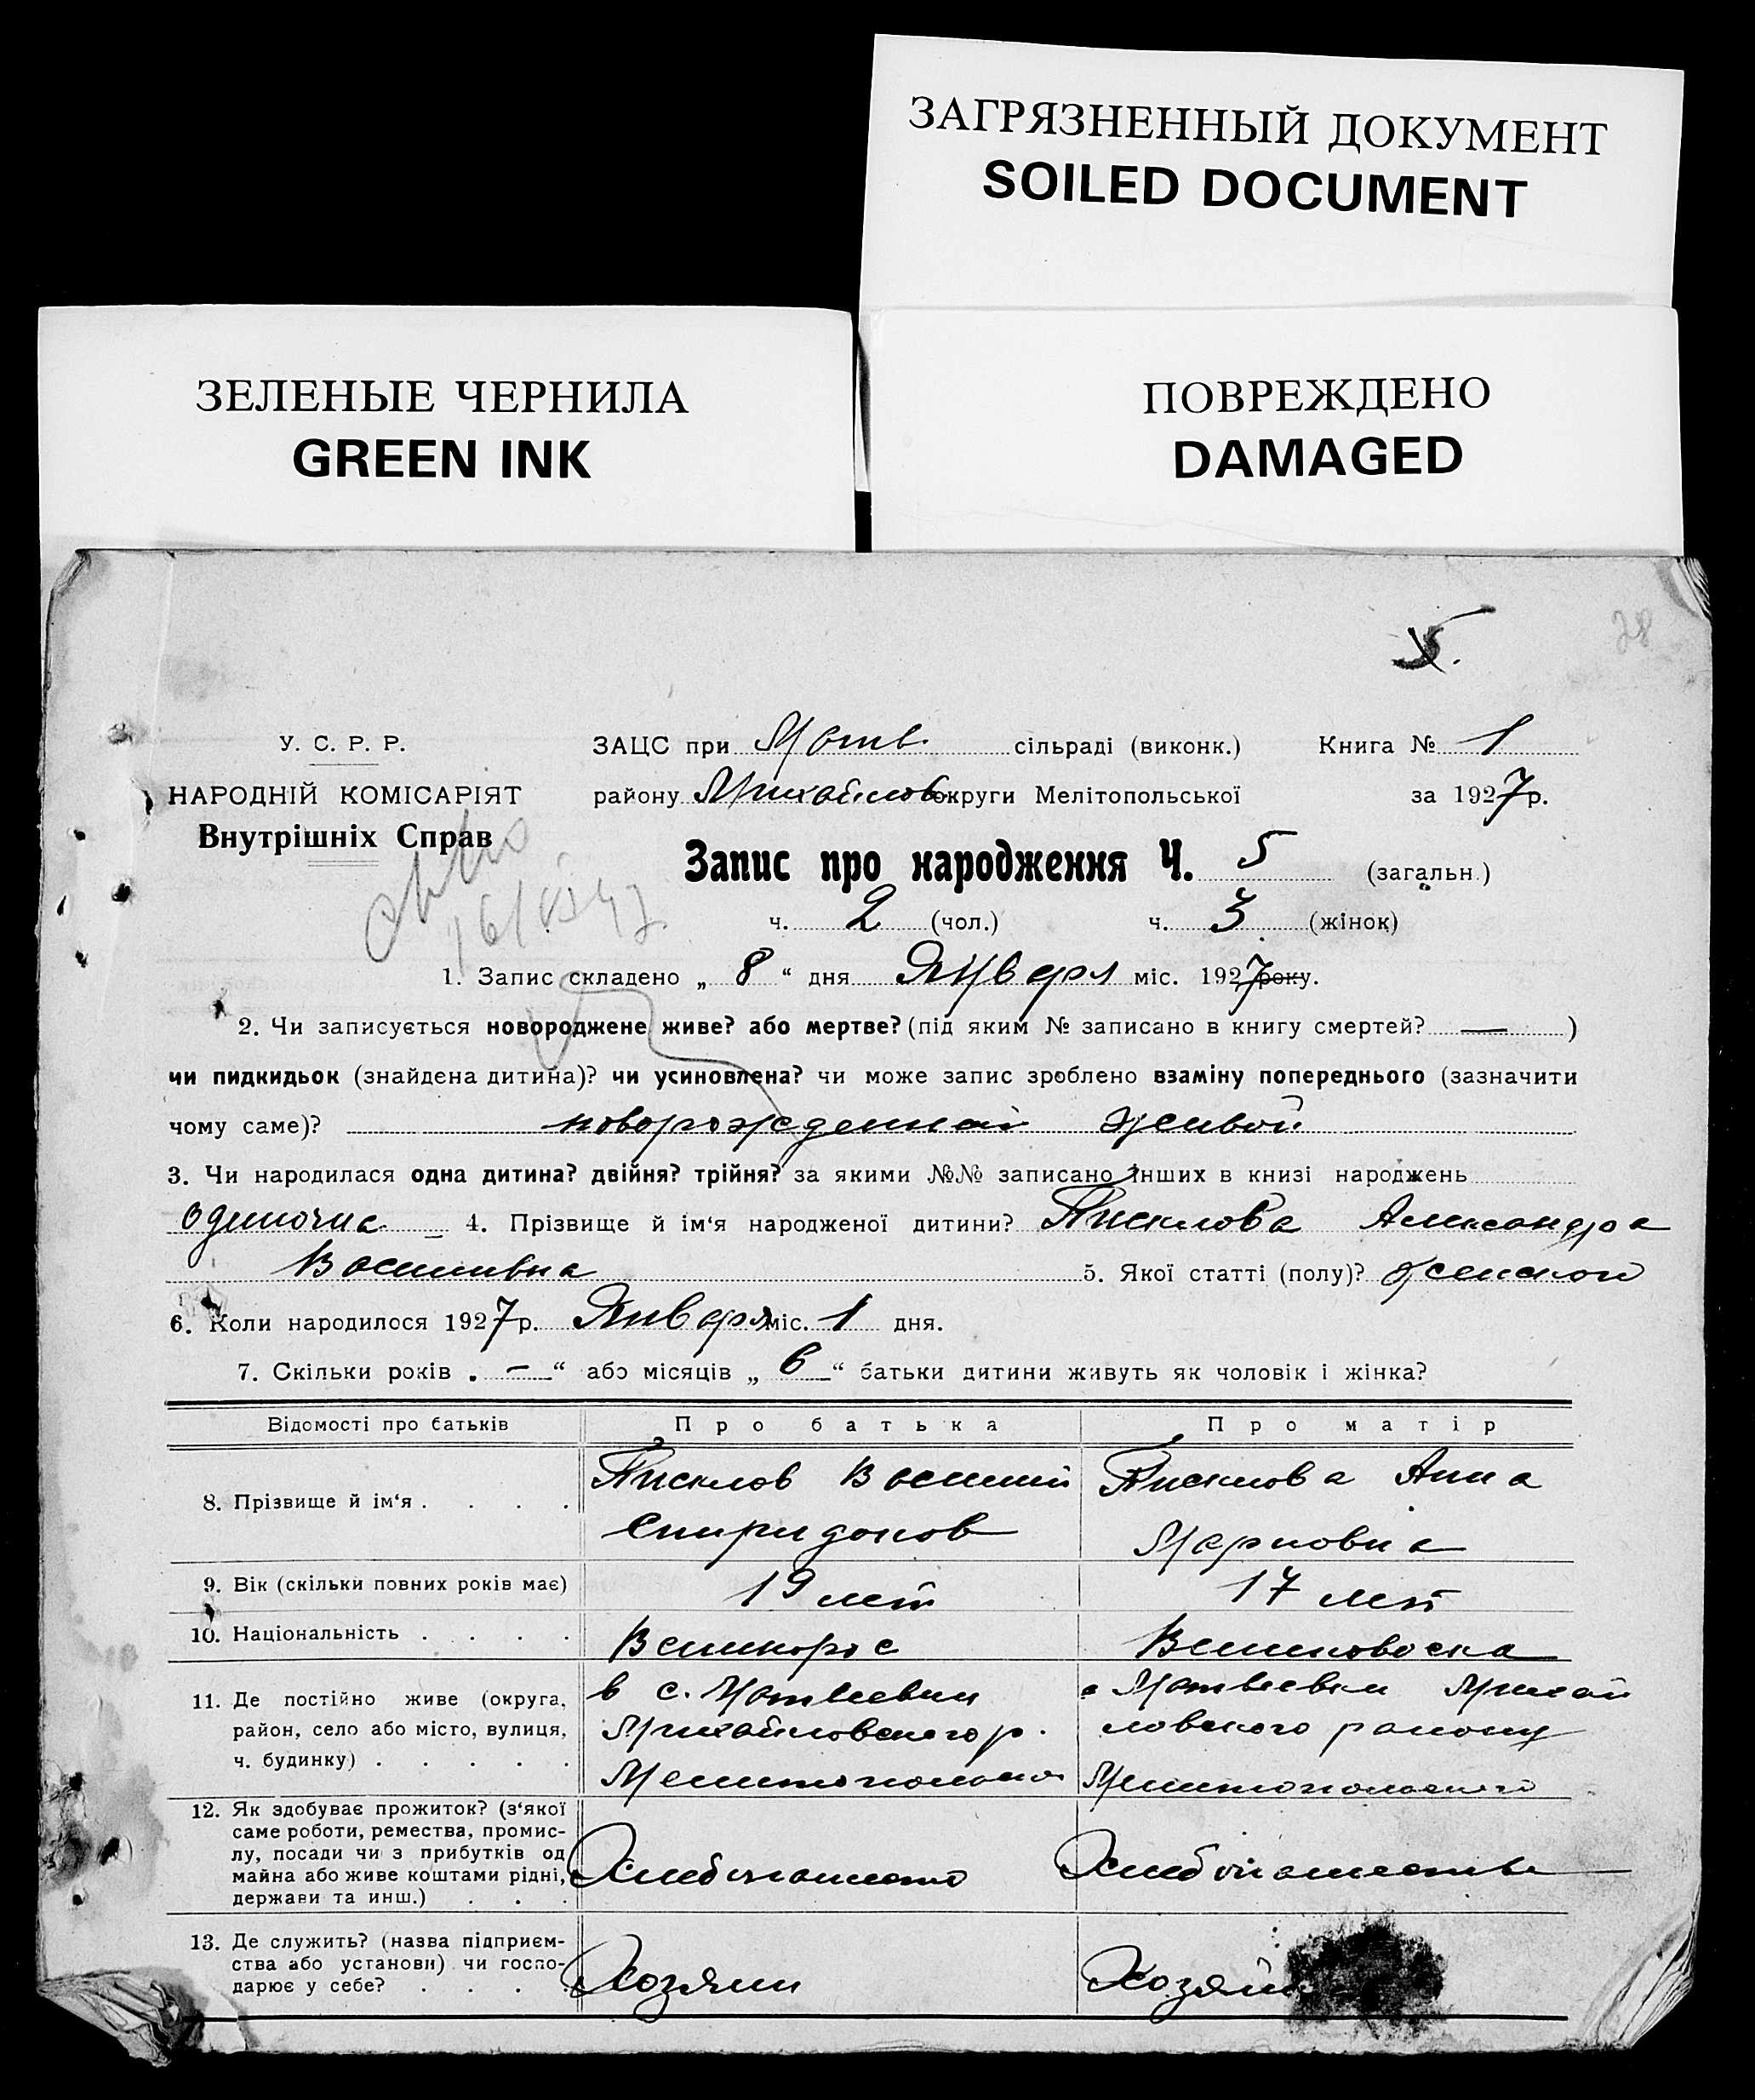 ЗАГРЯЗНЕННЫЙ ДОКУМЕНТ
SOILED DOCUMENT
ЗЕЛЕНЫЕ ЧЕРНИЛА
GREEN INK
ПОВРЕЖДЕНО
DAMAGED
5.
28
У. С. Р. Р.
НАРОДНІЙ КОМІСАРІЯТ
Внутрішніх Справ
ЗАЦС при Матв. сільраді (виконк.) Книга № 1
району Михайлов. округи Мелітопольської за 1927 р.
Запис про народження Ч. 5 (загальн.)
ч. 2 (чол.) ч. 3 (жінок)
1. Запис складено „ 8 “ дня Января міс. 1927 року.
2. Чи записується новороджене живе? або мертве? (під яким № записано в книгу смертей? — )
чи пидкидьок (знайдена дитина)? чи усиновлена? чи може запис зроблено взаміну попереднього (зазначити
чому саме)? новорожденный живой
3. Чи народилася одна дитина? двійня? трійня? за якими №№ записано інших в книзі народжень
одиночка 4. Прізвище й ім‘я народженої дитини? Александра
5. Якої статті (полу)? женской
6. Коли народилося 1927 р. Января міс. 1 дня.
7. Скільки років „ — “ або місяців „ 6 “ батьки дитини живуть як чоловік і жінка?
Відомості про батьків Про батька Про матір
8. Прізвище й ім‘я . . . . Василий Анна
Спиридонов Марковна
9. Вік (скільки повних років має) 19 лет 17 лет
10. Національність . . . . Великорос
11. Де постійно живе (округа, в с. Матвеевки Матвеевки Михай
район, село або місто, вулиця, Михайловского р. ловского району
ч. будинку) . . . . . Мелитопольского
12. Як здобуває прожиток? (з‘якої
саме роботи, ремества, промис-
лу, посади чи з прибутків од
майна або живе коштами рідні, Хлебопашество Хлебопашество
держави та инш.) . . .
13. Де служить? (назва підприєм-
ства або установи) чи госпо-
дарює у себе? . . . . Хозяин